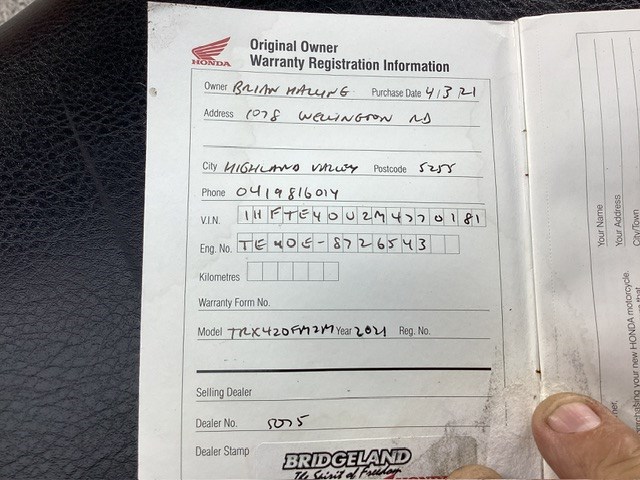 HONDA
Original Owner
Warranty Registration Information
Owner BRIAN HALLING Purchase Date 4/3/21
Address 1078 WELLINGTON RD
City HIGHLAND VALLEY Postcode 5255
Phone 0419816014
V.I.N. 1HFTE40U2M4770181
Eng. No. TE40E-8726543
Kilometres
Warranty Form No.
Model TRX420FM2M Year 2021 Reg. No.
Selling Dealer
Dealer No. 5075
Dealer Stamp
BRIDGELAND
The Spirit of Freedom
HONDA
Your Name
Your Address
City/Town
rchasing your new HONDA motorcycle.